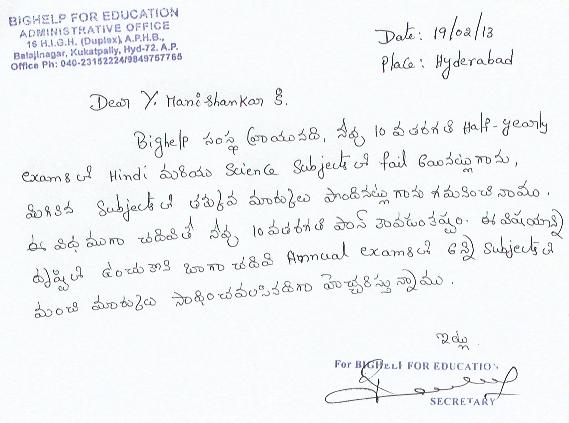 BIGHELP FOR EDUCATION
ADMINISTRATIVE OFFICE
16 H.I.G.H. (Duplex), A.P.H.B.,
Balajinagar, Kukatpally, Hyd-72. A.P.
Office Ph: 040-23152224/9849757765
Date: 19/02/13
Place: Hyderabad
Dear Y. Mani Shankar G.
Bighelp సంస్థ వ్రాయునది, నీవు 10 వ తరగతి Half-yearly
exams లో Hindi మరియు Science Subjects లో fail అయినట్లుగాను,
మిగిలిన Subjects లో తక్కువ మార్కులు పొందినట్లుగాను గమనించినాము.
ఈ విధముగా చదివితే నీవు 10 వ తరగతి పాస్ కావడం కష్టం. ఈ విషయాన్ని
దృష్టిలో ఉంచుకొని బాగా చదివి Annual exams లో అన్ని Subjects లో
మంచి మార్కులు సాధించవలసినదిగా హెచ్చరిస్తున్నాము.
ఇట్లు
For BIGHELP FOR EDUCATION
SECRETARY